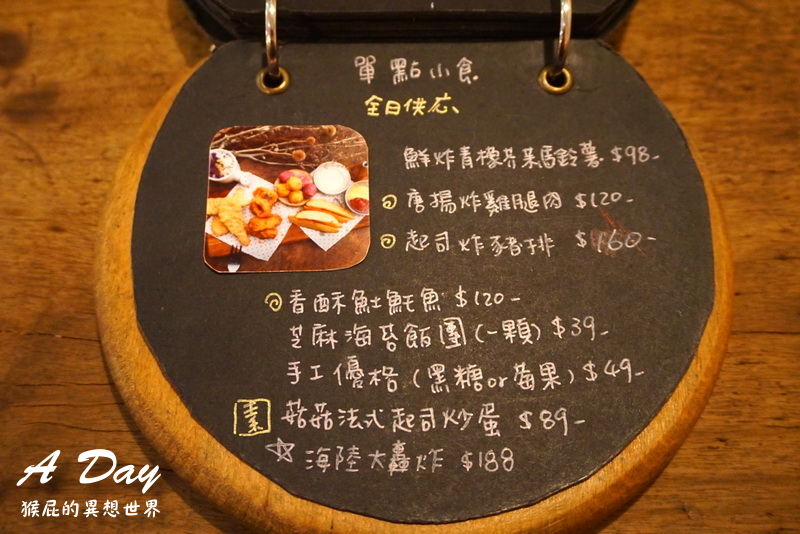 單點小食
全日供应、
鮮炸青檬芥茉馬鈴薯 $98-
唐揚炸雞腿肉 $120-
起司炸豬排 $160-
香酥𩵚魠魚 $120-
芝麻海苔飯團(一顆) $39-
手工優格(黑糖or莓果) $49-
素 菇菇法式起司炒蛋 $89-
☆海陸大轟炸 $188
A Day
猴屁的異想世界